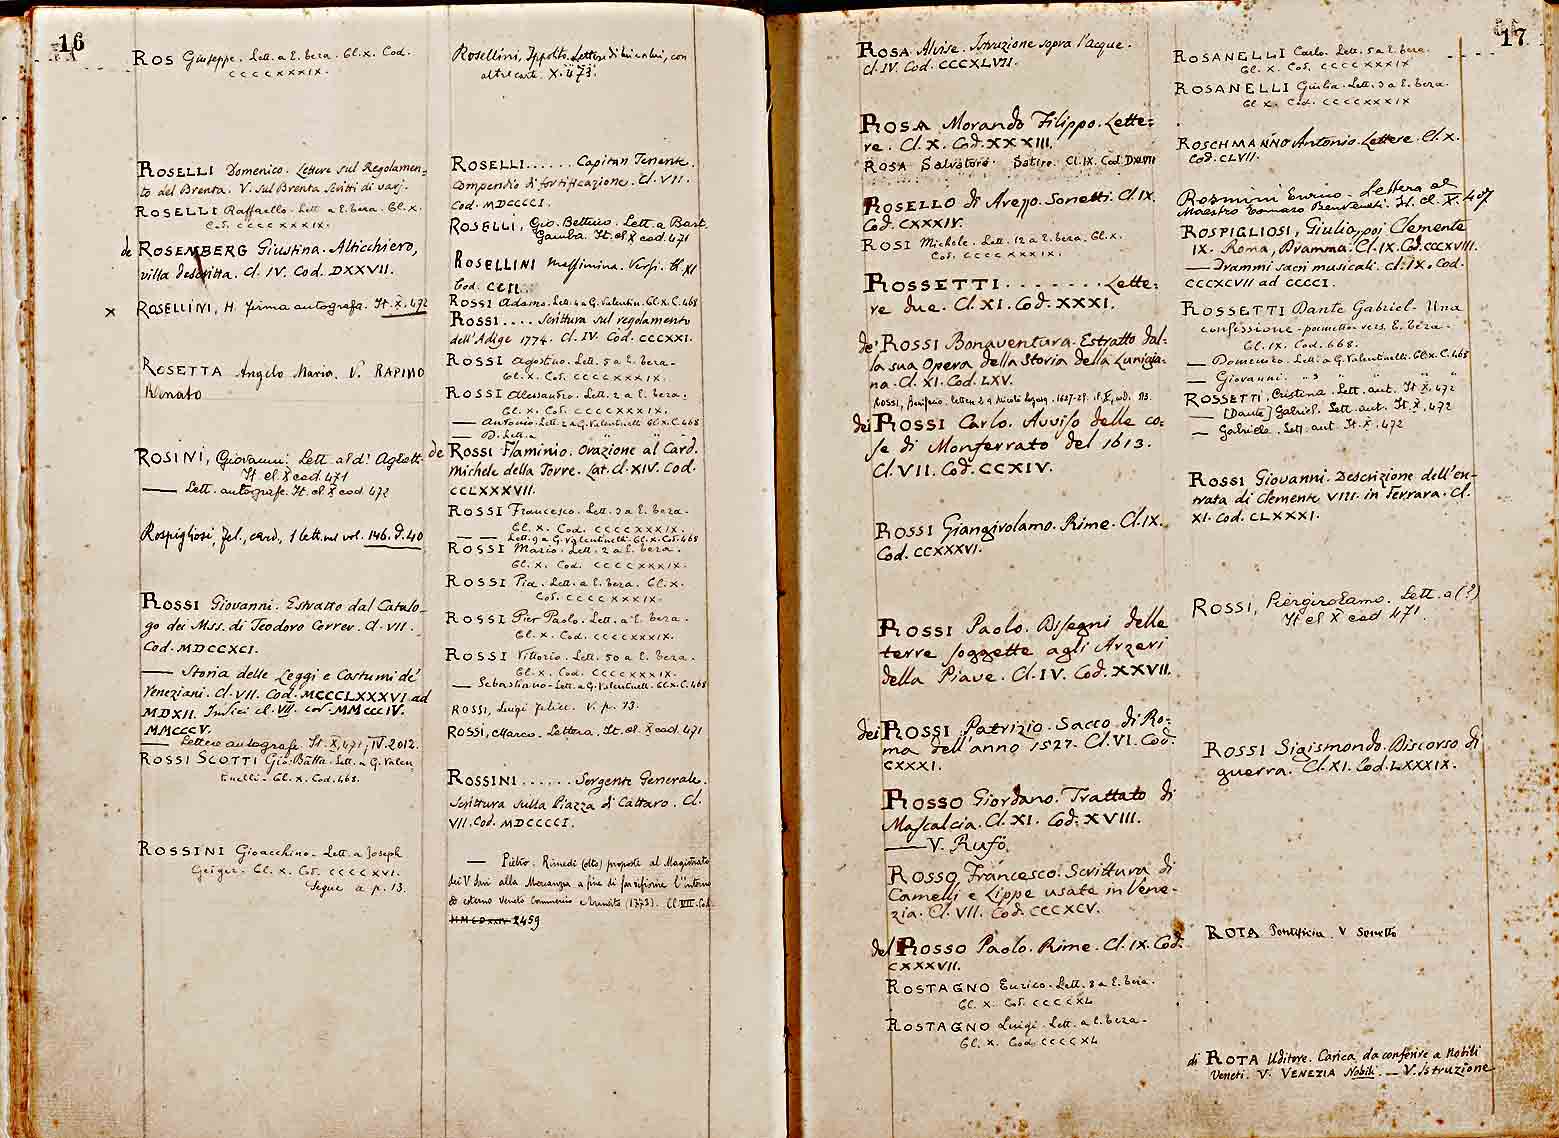 16
ROS Giuseppe. Lett. a E. Teza. Cl. X. Cod.
CCCCXXXIX.
ROSELLI Domenico. Lettere sul Regolamen-
to del Brenta. V. sul Brenta Scritti di varj.
ROSELLI Raffaello. Lett. a E. Teza. Cl. X.
Cod. CCCCXXXIX.
de ROSENBERG Giustina. Alticchiero,
villa descritta. Cl. IV. Cod. DXXVII.
x ROSELLINI, H. firma autografa. It. X, 472
ROSETTA Angelo Maria. V. RAPINO
Renato
ROSINI, Giovanni. Lett. al d.r Aglietti.
It. cl. X cod. 471
—— Lett. autografe. It. cl. X cod. 472
Rospigliosi, Fel., card., 1 lett. nel vol. 146. d. 40
ROSSI Giovanni. Estratto dal Catalo-
go dei Mss. di Teodoro Correr. Cl. VII.
Cod. MDCCXCI.
—— Storia delle Leggi e Costumi de'
Veneziani. Cl. VII. Cod. MCCCLXXXVI ad
MDXII. Indici cl. VII. cod. MMCCCIV.
MMCCCV.
—— Lettere autografe It. X, 471; IV. 2012.
ROSSI SCOTTI Gio. Batta. Lett. a G. Valen-
tinelli. Cl. X. Cod. 468.
ROSSINI Gioacchino. Lett. a Joseph
Geiger. Cl. X. Cod. CCCCXVI.
Segue a p. 13.
Rosellini, Ippolito. Lettere di lui e a lui, con
altre carte. X. 473.
ROSELLI...... Capitan Tenente.
Compendio di fortificazione. Cl. VII.
Cod. MDCCCCI.
ROSELLI, Gio. Bettino. Lett. a Bart.
Gamba. It. cl. X cod. 471
ROSELLINI Massimina. Versi. Cl. XI
Cod. CCII.
ROSSI Adamo. Lett. 4 a G. Valentin. Cl. X. C. 468
ROSSI.... Scrittura sul regolamento
dell'Adige 1774. Cl. IV. Cod. CCCXXI.
ROSSI Agostino. Lett. 5 a E. Teza.
Cl. X. Cod. CCCCXXXIX.
ROSSI Alessandro. Lett. 2 a E. Teza.
Cl. X. Cod. CCCCXXXIX.
—— Antonio. Lett. 2 a G. Valentinelli Cl. X. C. 468
—— D. Lett. a " "
de ROSSI Flaminio. Orazione al Card.
Michele della Torre. Lat. Cl. XIV. Cod.
CCLXXXVII.
ROSSI Francesco. Lett. 3 a E. Teza.
Cl. X. Cod. CCCCXXXIX.
—— —— Lett. 9 a G. Valentinelli. Cl. X. Cod. 468
ROSSI Mario. Lett. 2 a E. Teza.
Cl. X. Cod. CCCCXXXIX.
ROSSI Pia. Lett. a E. Teza. Cl. X.
Cod. CCCCXXXIX.
ROSSI Pier Paolo. Lett. a E. Teza.
Cl. X. Cod. CCCCXXXIX.
ROSSI Vittorio. Lett. 50 a E. Teza.
Cl. X. Cod. CCCCXXXIX.
—— Sebastiano. Lett. a G. Valentinelli. Cl. X. C. 468
ROSSI, Luigi Felice. V. p. 13.
ROSSI, Marco. Lettera. It. cl. X cod. 471
ROSSINI...... Sergente Generale.
Scrittura sulla Piazza di Cattaro. Cl.
VII. Cod. MDCCCCI.
—— Pietro. Rimedi (otto) proposti al Magistrato
dei V Savi alla Mercanzia a fine di far rifiorire l'interno
ed esterno Veneto Commercio e Arendita (1773). Cl. VII. Cod.
2459
17
ROSA Alvise. Istruzione sopra l'acque.
Cl. IV. Cod. CCCXLVII.
ROSA Morando Filippo. Lette-
re. Cl. X. Cod. XXXIII.
ROSA Salvatore. Satire. Cl. IX. Cod. DXLVII
ROSELLO di Arezzo. Sonetti. Cl. IX.
Cod. CXXXIV.
ROSI Michele. Lett. 12 a E. Teza. Cl. X.
Cod. CCCCXXXIX.
ROSSETTI....... Lette-
re due. Cl. XI. Cod. XXXI.
de' ROSSI Bonaventura. Estratto dal-
la sua Opera della Storia della Lunigia-
na. Cl. XI. Cod. LXV.
dei ROSSI Carlo. Avviso delle co-
se di Monferrato del 1613.
Cl. VII. Cod. CCXIV.
ROSSI Giangirolamo. Rime. Cl. IX.
Cod. CCXXXVI.
ROSSI Paolo. Disegni delle
terre soggette agli Arzeri
della Piave. Cl. IV. Cod. XXVII.
dei ROSSI Patrizio. Sacco di Ro-
ma dell'anno 1527. Cl. VI. Cod.
CXXXI.
ROSSO Giordano. Trattato di
Mascalcia. Cl. XI. Cod. XVIII.
—— V. Rufo
ROSSO Francesco. Scrittura di
Camelli e Lippe usate in Vene-
zia. Cl. VII. Cod. CCCXCV.
del ROSSO Paolo. Rime. Cl. IX. Cod.
CXXXVII.
ROSTAGNO Enrico. Lett. 8 a E. Teza.
Cl. X. Cod. CCCCXL
ROSTAGNO Luigi. Lett. a E. Teza.
Cl. X. Cod. CCCCXL
ROSANELLI Carlo. Lett. 5 a E. Teza.
Cl. X. Cod. CCCCXXXIX
ROSANELLI Giulia. Lett. 3 a E. Teza.
Cl. X. Cod. CCCCXXXIX
ROSCHMANNO Antonio. Lettere. Cl. X.
Cod. CLVII.
Rosmini Enrico. Lettera al
Maestro Tommaso Benvenuti. It. cl. X. 407
ROSPIGLIOSI, Giulio, poi Clemente
IX. Roma, Dramma. Cl. IX. Cod. CCCXVIII.
—— Drammi sacri musicali. Cl. IX. Cod.
CCCXCVII ad CCCCI.
ROSSETTI Dante Gabriel. Una
confessione - poemetto vers. E. Teza.
Cl. IX. Cod. 668.
—— Domenico. Lett. a G. Valentinelli. Cl. X. C. 468
—— Giovanni. " " " "
ROSSETTI, Cristina. Lett. aut. It. X, 472
—— [Dante] Gabriel. Lett. aut. It. X, 472
—— Gabriele. Lett. aut. It. X. 472
ROSSI Giovanni. Descrizione dell'en-
trata di Clemente VIII. in Ferrara. Cl.
XI. Cod. CLXXXI.
ROSSI, Piergirolamo. Lett. a (?)
It. cl. X cod. 471.
ROSSI Sigismondo. Discorso di
guerra. Cl. XI. Cod. LXXXIX.
ROTA Pontificia. V Sonetto
di ROTA Uditore. Carica da conferire a Nobili
Veneti. V. VENEZIA Nobili. — V. Istruzione